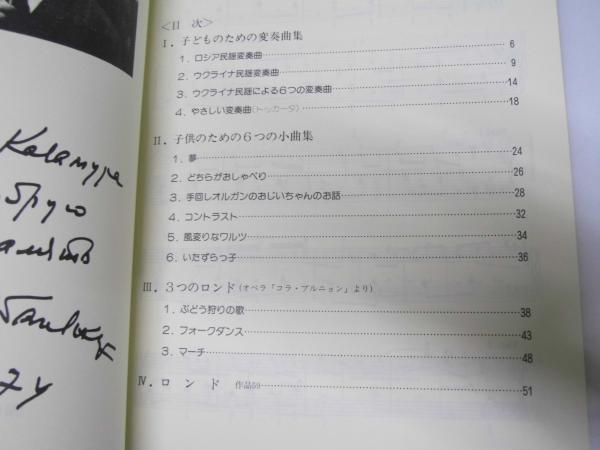 〈目 次〉
Ⅰ．子どものための変奏曲集
1．ロシア民謡変奏曲 6
2．ウクライナ民謡変奏曲 9
3．ウクライナ民謡による6つの変奏曲 14
4．やさしい変奏曲(トッカータ) 18
Ⅱ．子供のための6つの小曲集
1．夢 24
2．どちらがおしゃべり 26
3．手回しオルガンのおじいちゃんのお話 28
4．コントラスト 32
5．風変りなワルツ 34
6．いたずらっ子 36
Ⅲ．3つのロンド(オペラ「コラ・ブルニョン」より)
1．ぶどう狩りの歌 38
2．フォークダンス 43
3．マーチ 48
Ⅳ．ロ ン ド 作品59 51